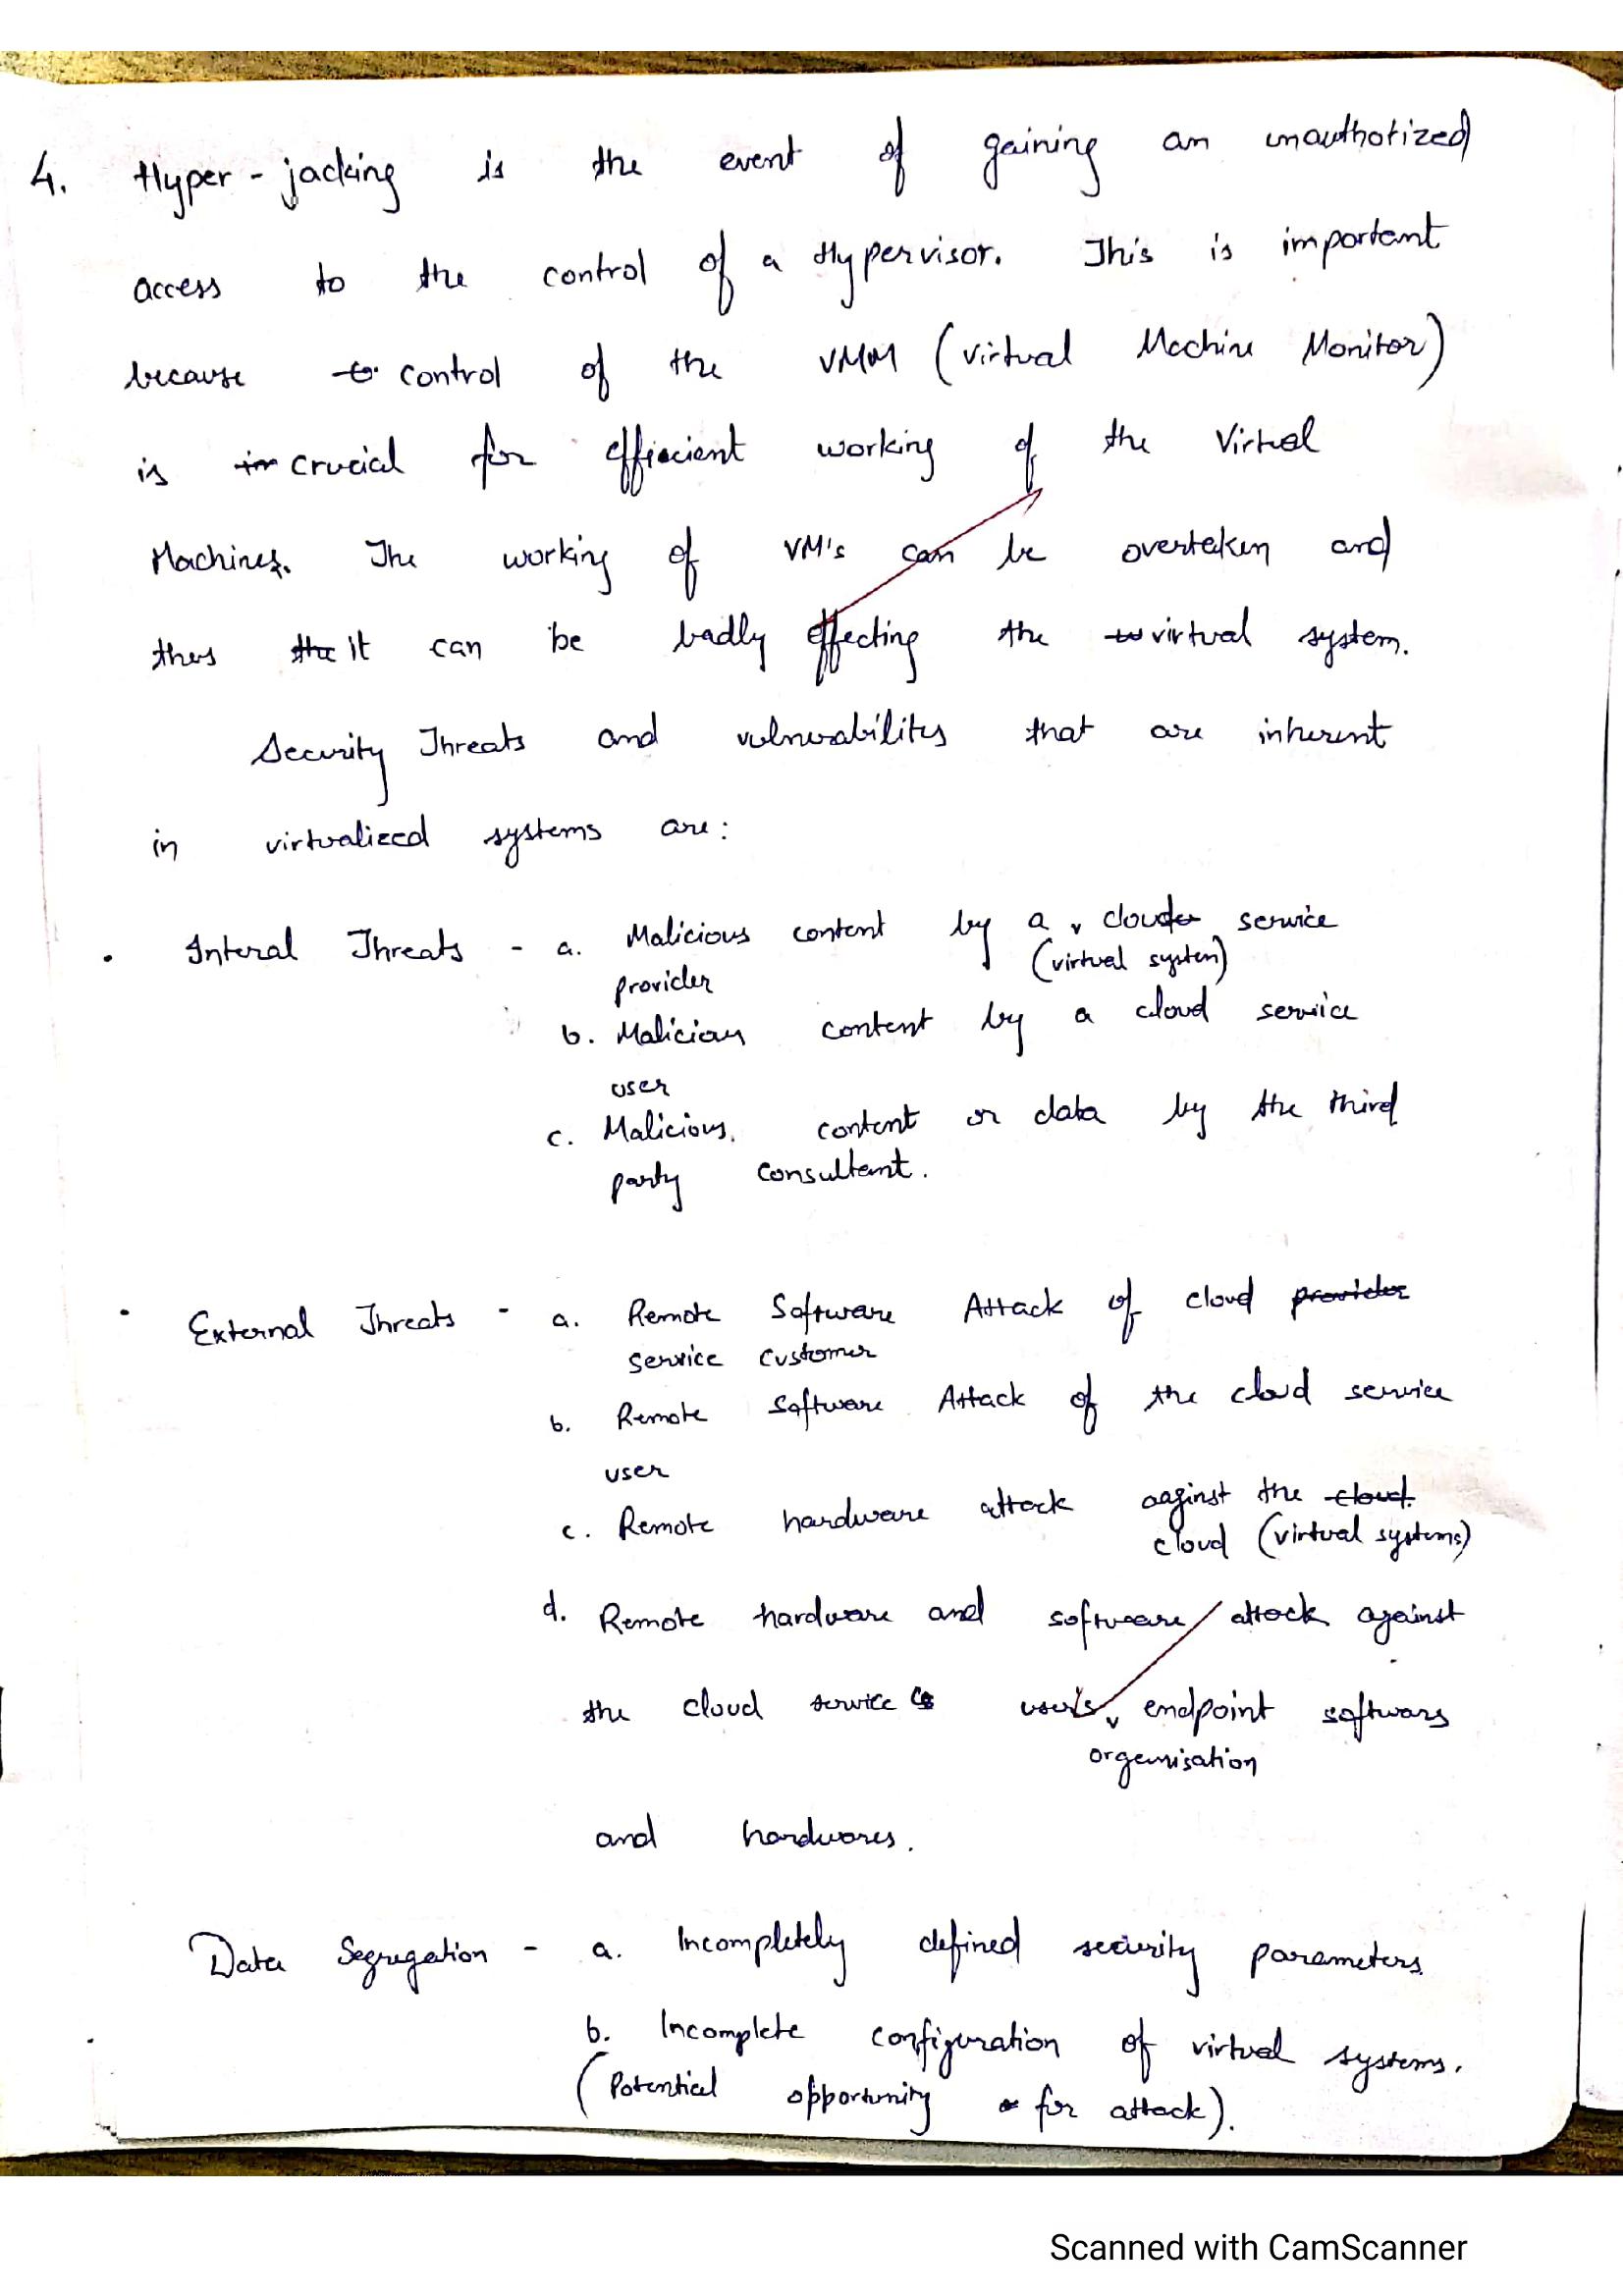 4. Hyper-jacking is the event of gaining an unauthorized
access to the control of a Hypervisor. This is important
because control of the VMM (Virtual Machine Monitor)
is crucial for effiecient working of the Virtual
Machines. The working of VM's can be overtaken and
thus it can be badly effecting the virtual system.
Security Threats and vulnerabilities that are inherent
in virtualized systems are:
• Interal Threats - a. Malicious content by a cloud service
(virtual system)
provider
b. Malicious content by a cloud service
user
c. Malicious content or data by the third
party consultant.
• External Threats - a. Remote Software Attack of cloud provider
service customer
b. Remote Software Attack of the cloud service
user
c. Remote hardware attack aaginst the cloud
cloud (virtual systems)
d. Remote hardware and software attack against
the cloud service user's endpoint softwars
organisation
and hardwares.
Data Segregation - a. Incompletely defined security parameters
b. Incomplete configuration of virtual systems.
(Potential opportunity for attack).
Scanned with CamScanner